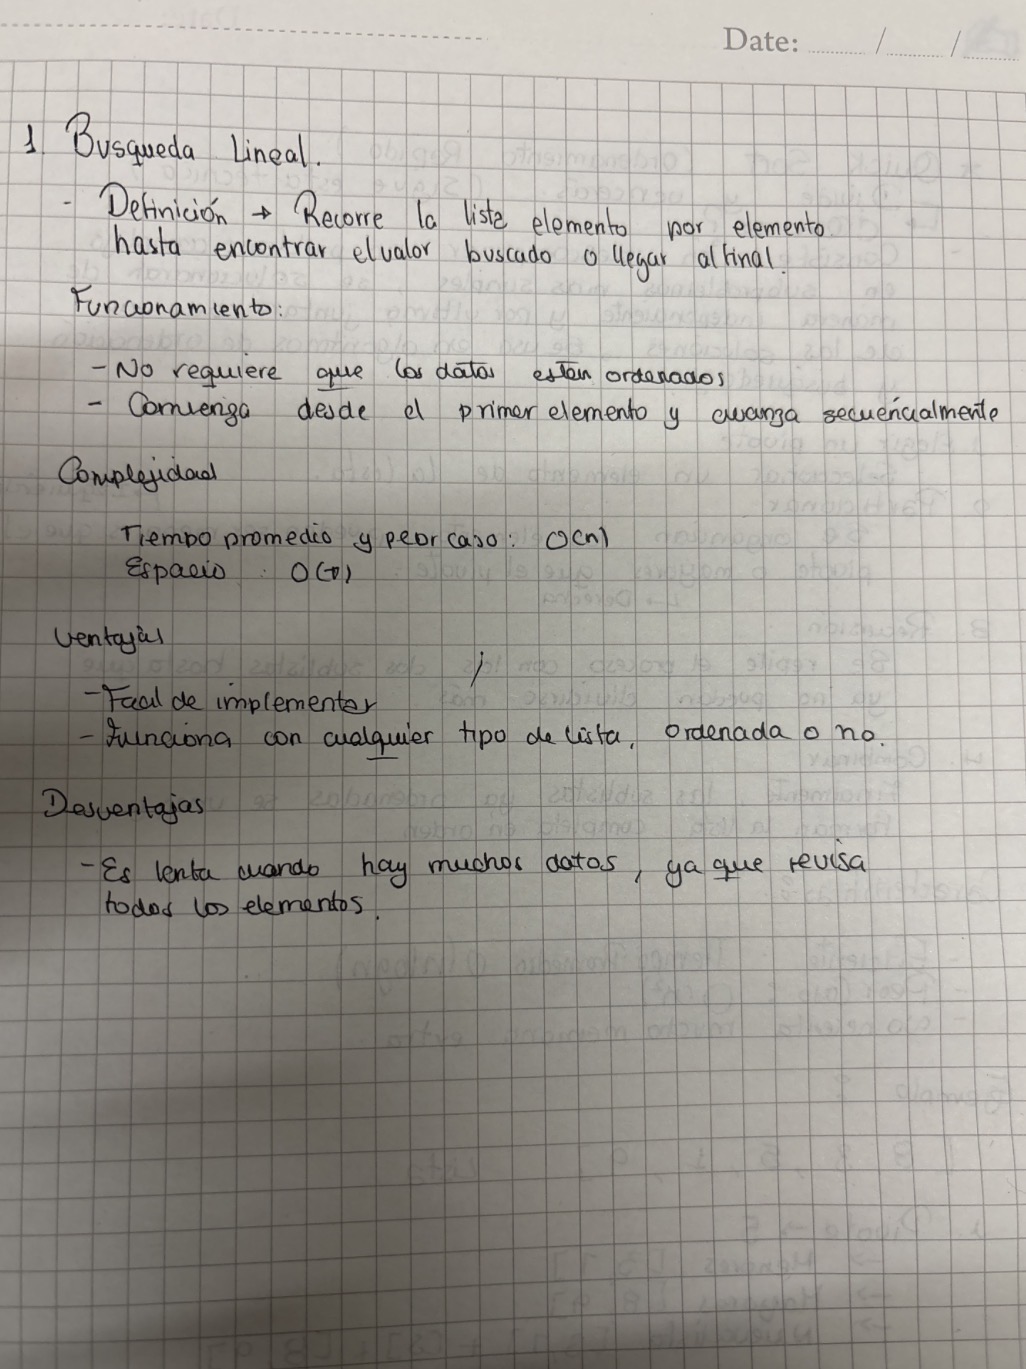 Date: ...... / ...... /
1. Busqueda Lineal.
- Definición → Recorre la lista elemento por elemento
hasta encontrar el valor buscado o llegar al final.
Funcionamiento:
- No requiere que los datos estén ordenados
- Comienza desde el primer elemento y avanza secuencialmente
Complejidad
Tiempo promedio y peor caso: O(n)
Espacio : O(1)
Ventajas
- Facil de implementar
- Funciona con cualquier tipo de lista, ordenada o no.
Desventajas
- Es lenta cuando hay muchos datos, ya que revisa
todos los elementos.